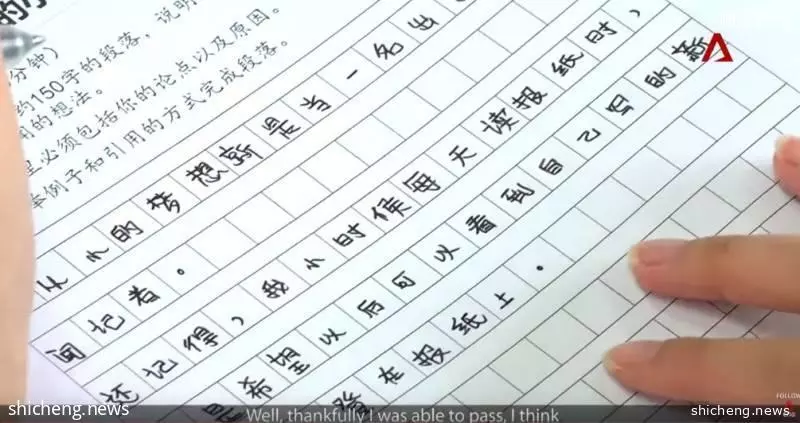 分钟)
约150字的段落，说明
的想法。
必须包括你的论点以及原因。
举例子和引用的方式完成段落。
从小的梦想就是当一名出
闻记者。
还记得，我小时候每天读报纸时，
希望以后可以看到自己写的新
登在报纸上。
Well, thankfully I was able to pass, I think
FOLLOW
shicheng.news
shicheng.news